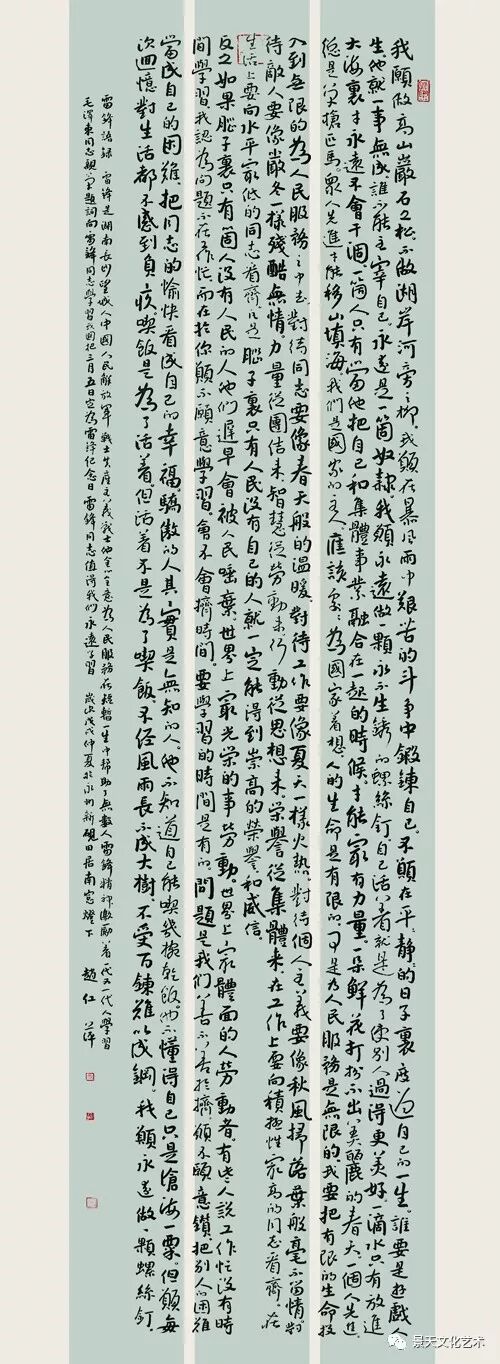 我願做高山嚴石之松不做湖岸河旁之柳我願在暴風雨中艱苦的斗争中鍛鍊自己不願在平静的日子裏度過自己的一生誰要是遊戲人
生他就一事無成誰不能主宰自己永遠是一箇奴隸我願永遠做一顆永不生銹的螺絲釘自己活着就是為了使別人過得更美好一滴水只有放進
大海裏才永遠不會干涸一個人只有當他把自己和集體事業融合在一起的時候才能最有力量一朵鮮花打扮不出美麗的春天一個人先進
總是單槍匹馬眾人先進才能移山填海我們是國家的主人應該處處為國家着想人的生命是有限的可是為人民服務是無限的我要把有限的生命投
入到無限的為人民服務之中去對待同志要像春天般的温暖對待工作要像夏天一樣火热對待個人主義要像秋風掃落葉般毫不留情對
待敵人要像嚴冬一樣殘酷無情力量從團结来智慧從勞動来行動從思想来荣譽從集體来在工作上要向積極性最高的同志看齊在
生活上要向水平最低的同志看齊凡是腦子裏只有人民没有自己的人就一定能得到崇高的荣譽和威信
反之如果腦子裏只有個人没有人民的人他們遲早會被人民唾棄世界上最光荣的事勞動世界上最體面的人勞動者有些人說工作忙没有時
間學習我認為問題不在工作忙而在於你願不願意學習會不會擠時間要學習的時間是有的問題是我們善不善於擠願不願意鑽把別人的困難
當成自己的困難把同志的愉快看成自己的幸福驕傲的人其實是無知的人他不知道自己能喫幾碗乾飯他不懂得自己只是滄海一粟但願每
次回憶對生活都不感到負疚喫飯是為了活着但活着不是為了喫飯不经風雨長不成大樹不受百鍊難以成鋼我願永遠做一顆螺絲釘
雷鋒語録 雷鋒是湖南長沙望城人中國人民解放軍戰士共産主義戰士他全心全意為人民服務在短暫一生中幫助了無數人雷鋒精神激勵着一代又一代人學習
毛澤東同志親筆題詞向雷鋒同志學習我国把三月五日定為雷鋒纪念日雷鋒同志值得我們永遠學習 歲次戊戌仲夏於永州新硯田居南窓燈下 趙仁
景天文化艺术